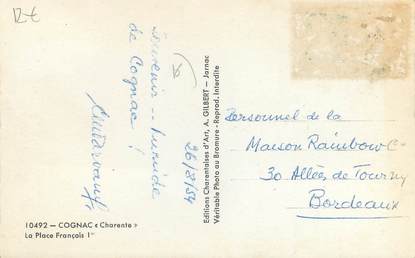 12€
Souvenir .. humide
de Cognac !
26/8/54
10492 — COGNAC « Charente »
La Place François 1er
Editions Charentaises d'Art, A. GILBERT — Jarnac
Véritable Photo au Bromure - Reprod. Interdite
Personnel de la
Maison Rainbow C°
30 Allées de Tourny
Bordeaux